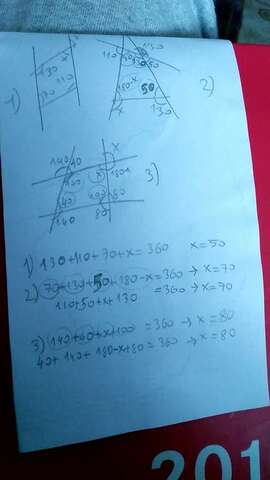 x
130
110
1)
130
110
50
x
130
2)
140
40
x
3)
40
80
140
80
1) 130+110+70+x=360 x=50
2) 70+130+50+180-x=360→x=70
110+50+x+130 =360→x=70
3) 140+40+x+100 =360→x=80
40+140+180-x+80=360→x=80
201